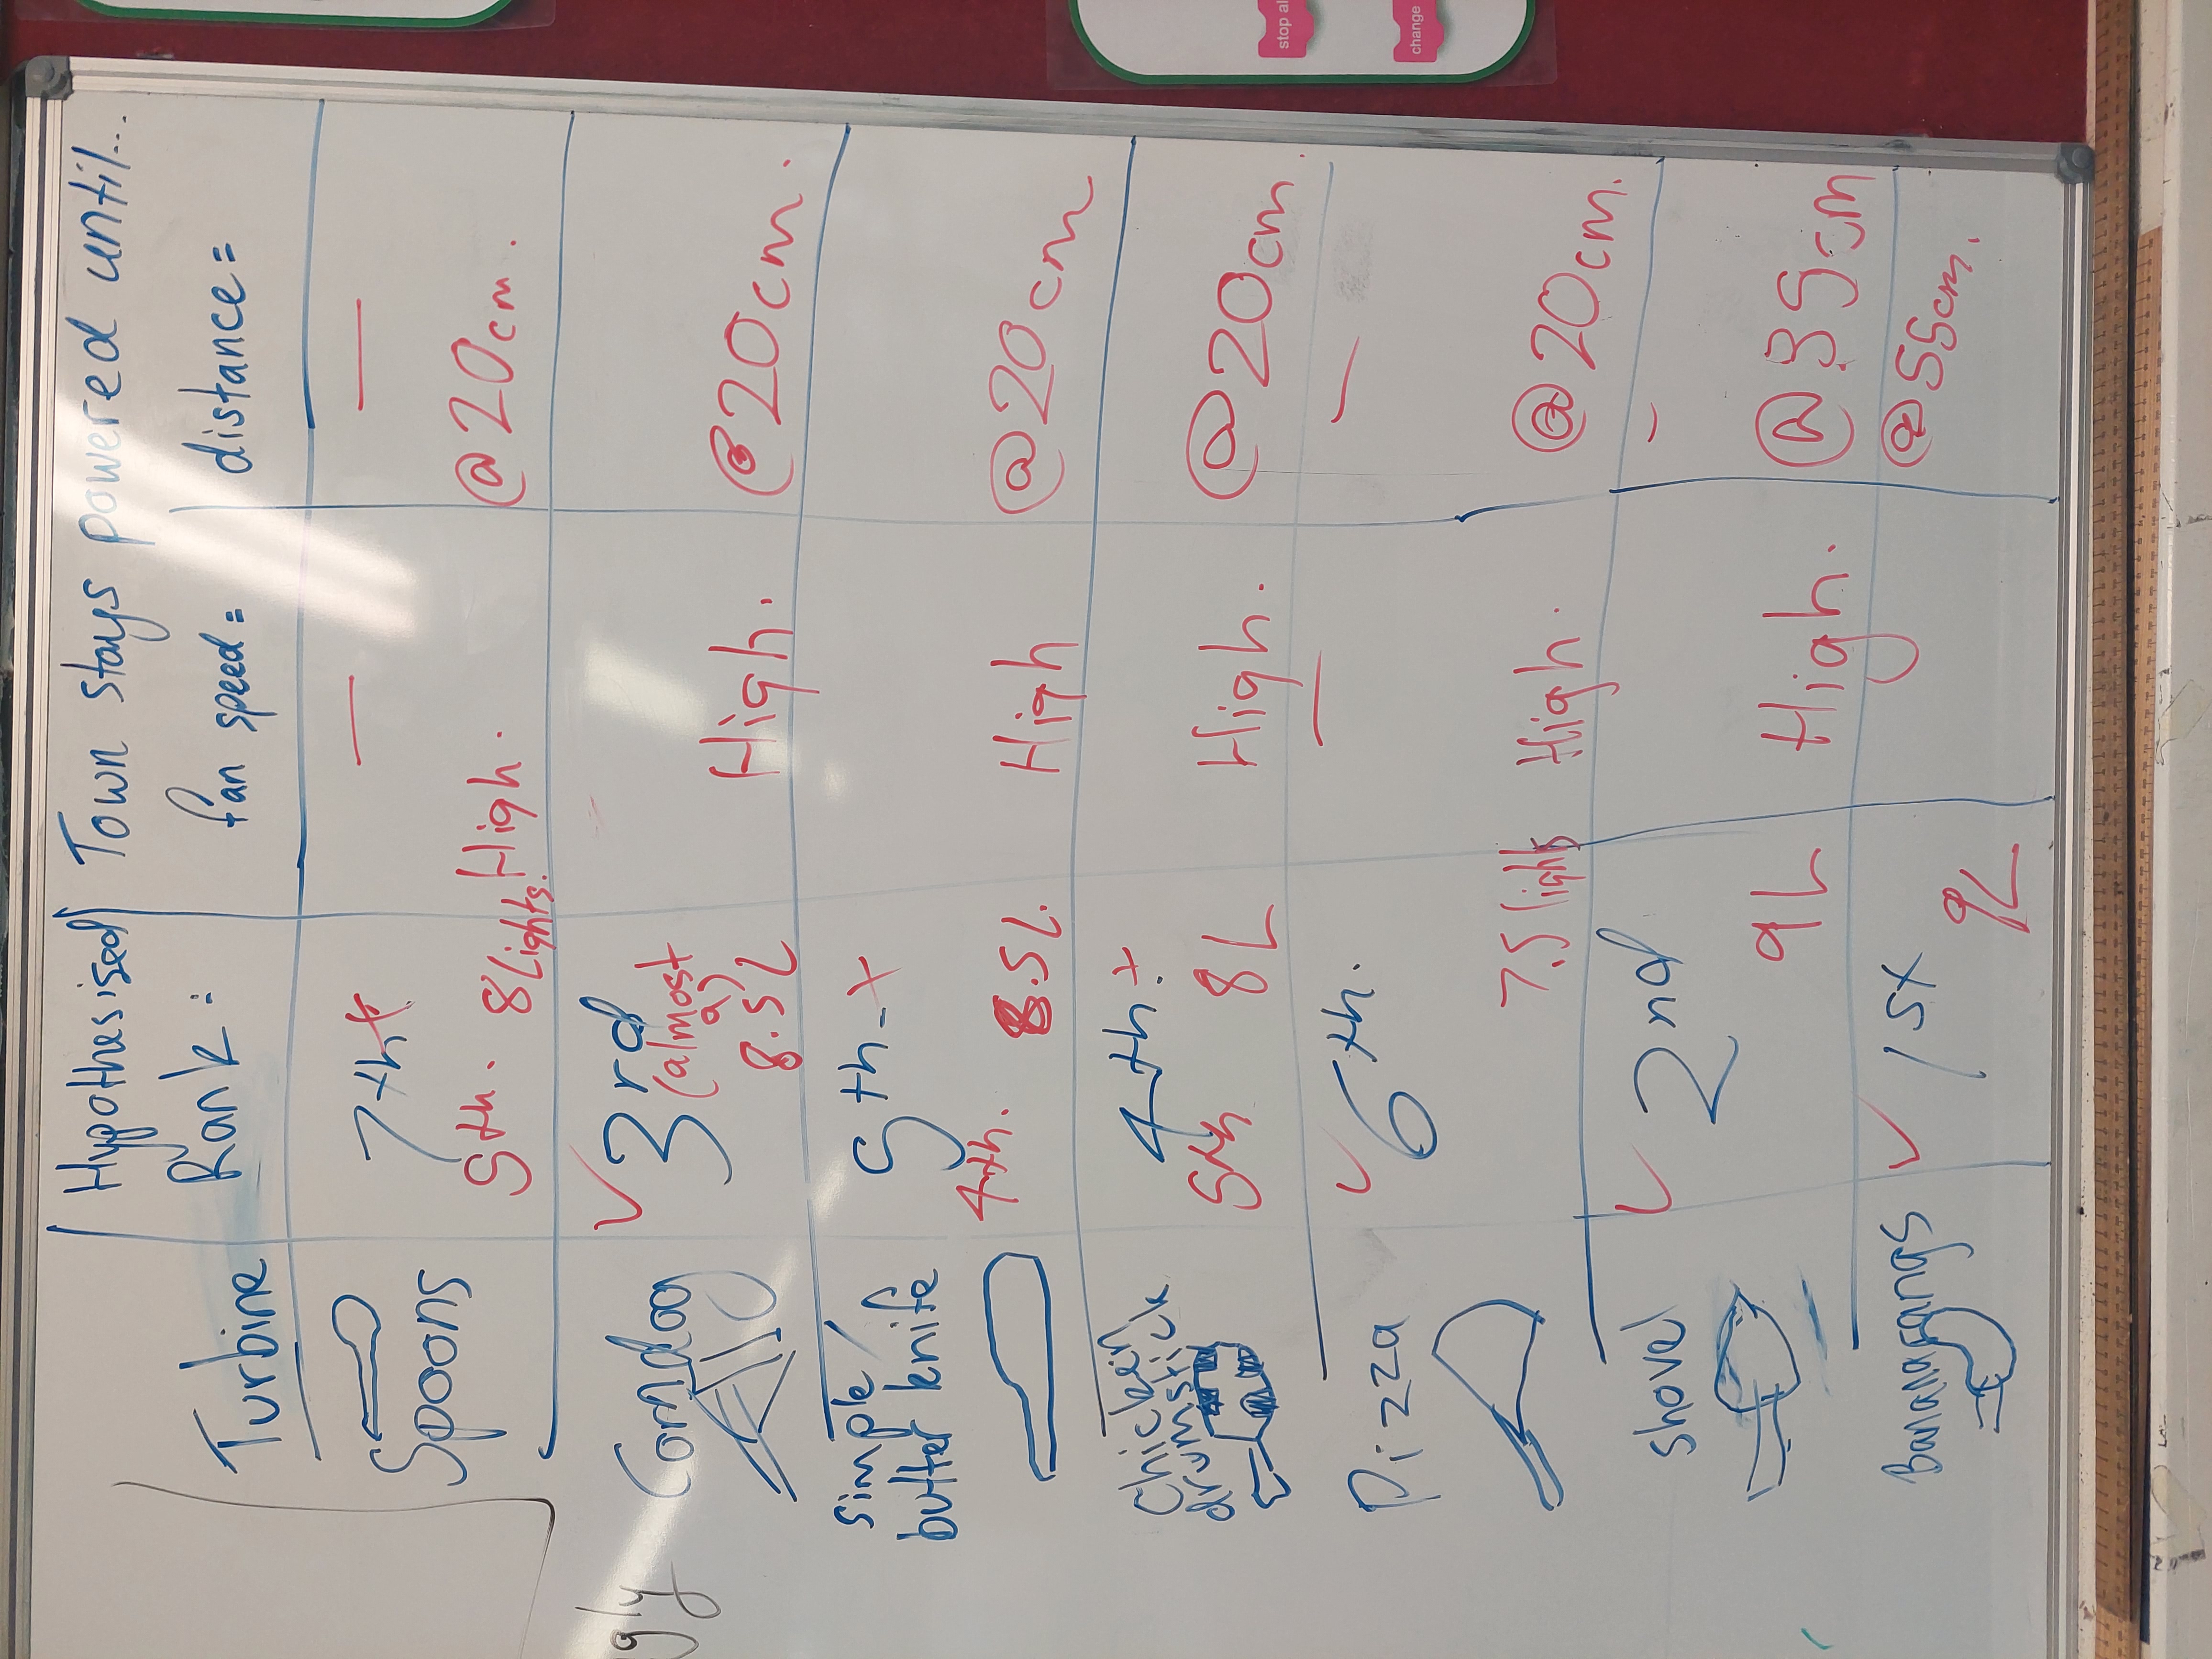 Hypothesised Town stays powered until...
Turbine Rank: fan speed= distance=
Spoons 7th x — —
5th. 8 Lights. High. @ 20cm.
gly
Corndog ✓ 3rd
(almost
9)
8.5L High. @ 20cm.
simple/
butter knife 5th- x
4th. 8.5L. High @ 20cm
Chicken
drumstick 4th x
5th 8L High. @ 20cm
Pizza ✓ 6th. — —
7.5 lights High. @ 20cm.
shovel ✓ 2nd -
9L High. @ 35cm
Bananarangs ✓ 1st @ 55cm.
9L
stop al
change